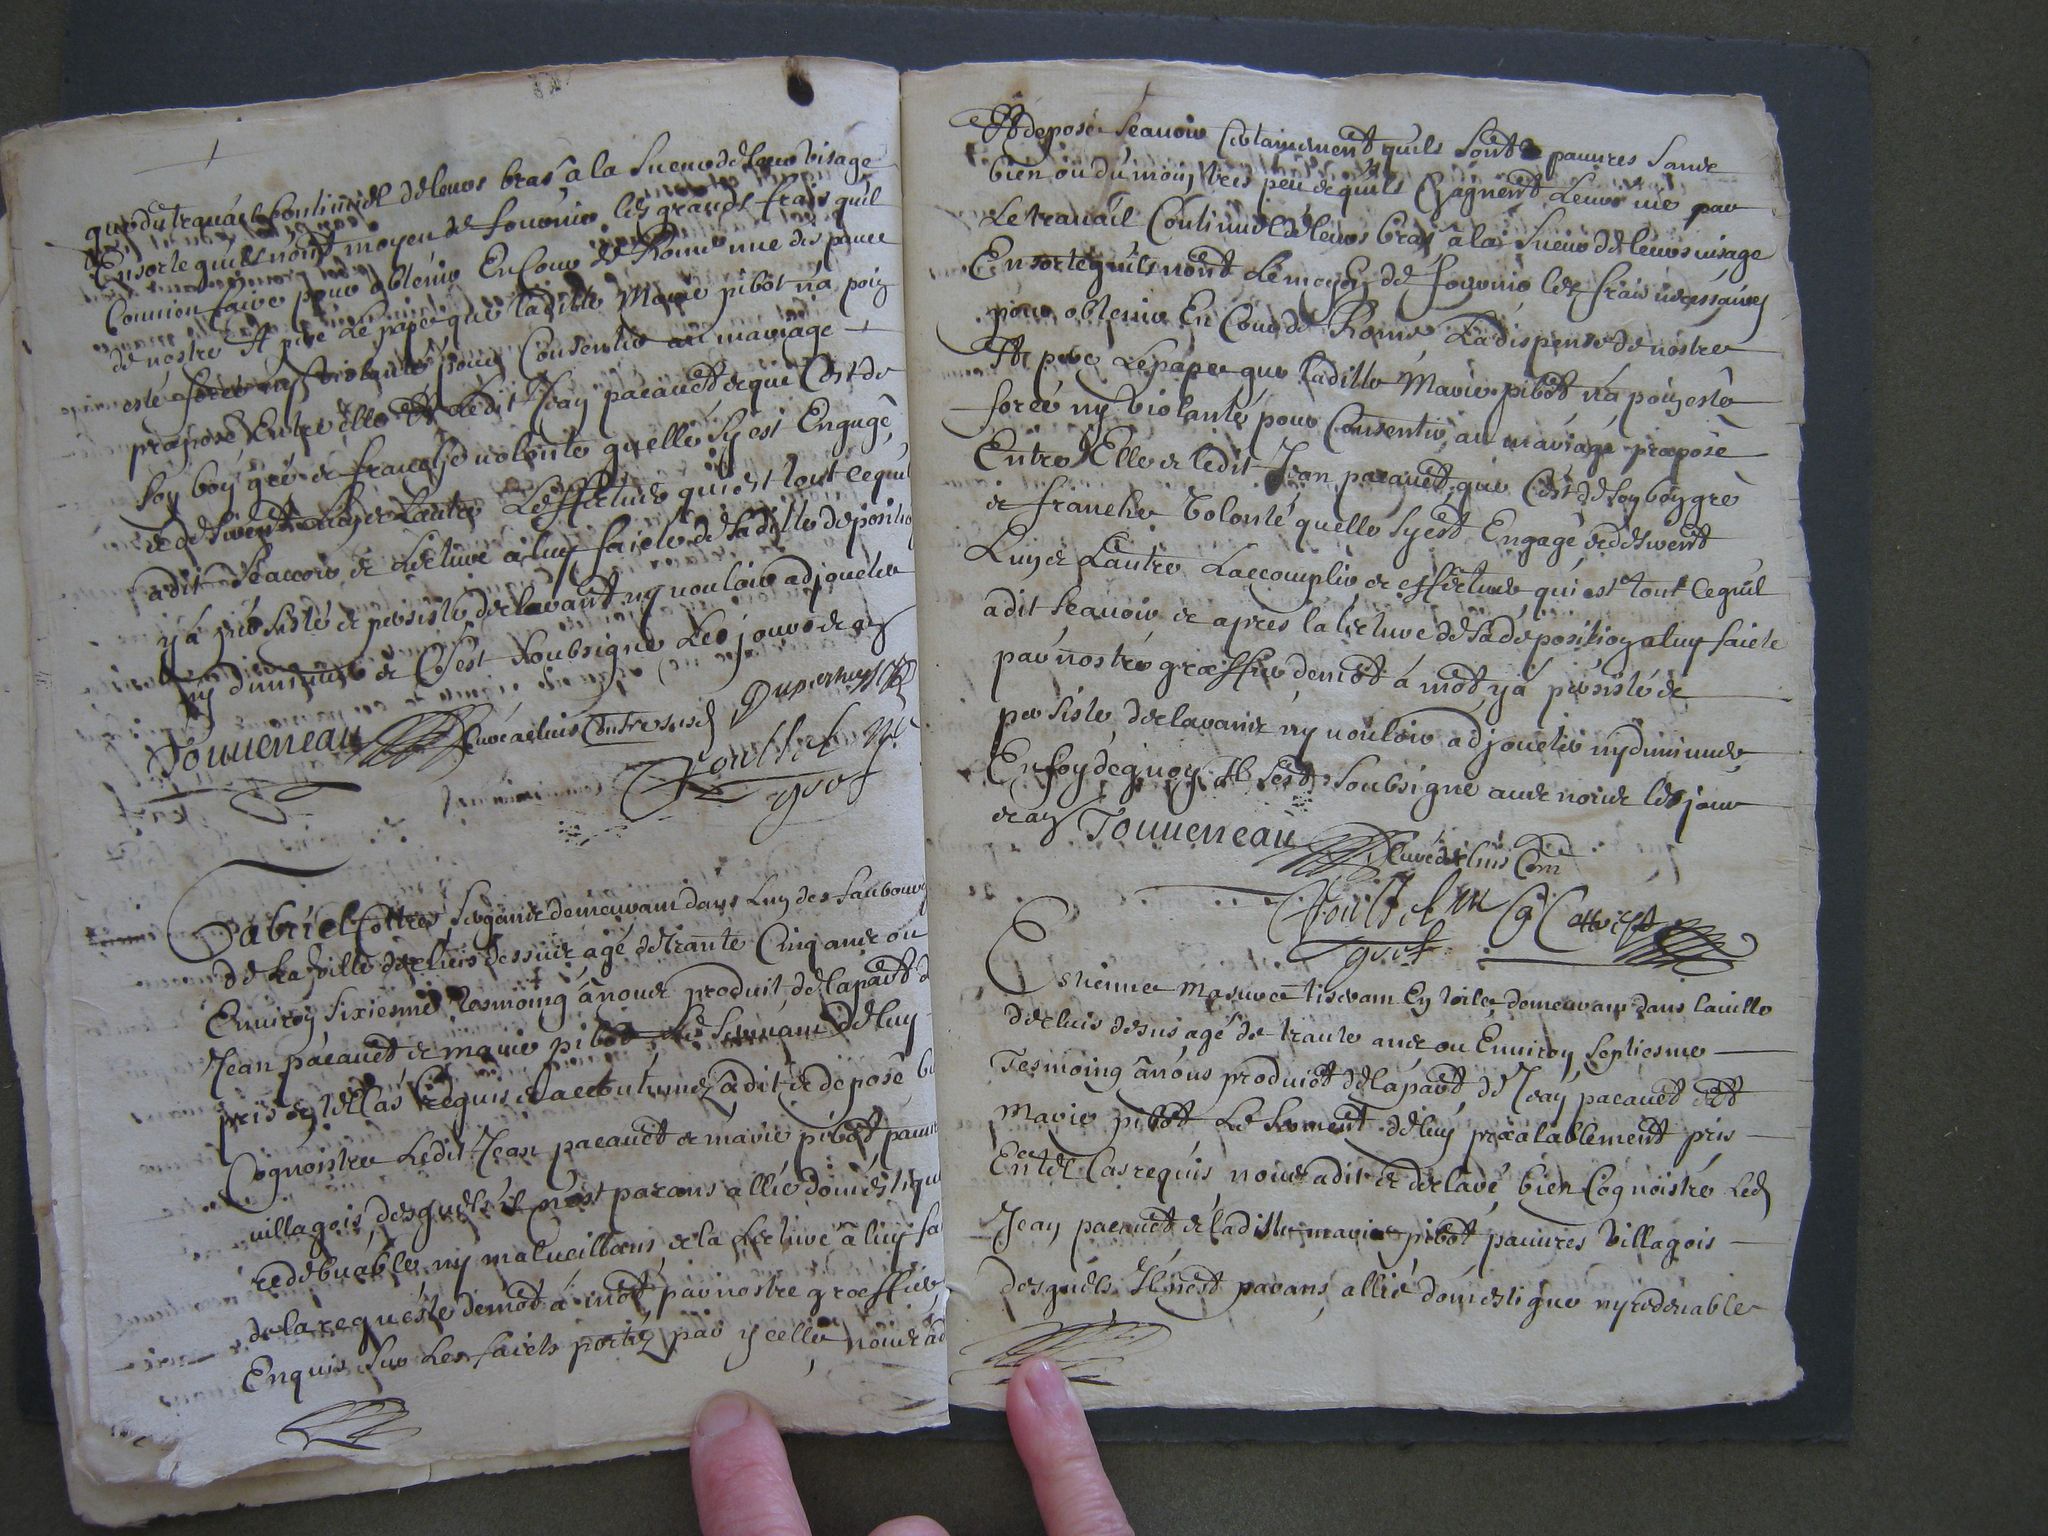 que du trauail Continuel de leurs bras a la Sueur de Leur visage
En sorte quils nont moyen de fournir les grands frais quil
Conuien faire pour obtenir En Cour de Rome une dispence
de nostre St pere Le pape que laditte Marie pibot na poin
esté forcé ny violanté pour Consentir au mariage
proposé Entre elle Et Ledit Jean pacauet de que Cest de
son bon gré et franche volonté quelle sy est Engagé
et desirent Lun et Lautre Leffectuer qui est tout ce quil
a dit Scauoir et Lecture a luy faicte de sa ditte depositio
y a persisté et persiste declarant ny vouloir adjouster
ny diminuer et Cest Soubsigné Les jours et an
Jouueneau Curé de luis Com susd Duperray
Gabriel Cottres, Sergeur demeurant dans Lun des faubour
de La Ville de cluis dessus agé de trante Cinq ans ou
Enuiron sixiesme tesmoing a nous produit de la part d
Jean pacauet et marie pibot Le Serman de luy
pris en tel Cas Requis et accoutumez a dit et depose bi
Cognoistre Ledit Jean pacauet et marie pibot pauur
villagois, desquels il nest parans allié domestique
redebuable ny malueillans et la Lecture a luy fai
de la requeste de mot a mot par nostre greffier
Enquis Sur Les faicts portez par ycelle nous a d
Et depose Scauoir Certainement quils Sont pauures Sans
bien ou du moin tres peu et quils Gagnent Leur vie par
Le trauail Continuel de leurs bras a la Sueur de leurs uisage
En sorte quils nont Le moyen de fournir les frais necessaires
pour obtenir En Cour de Rome La dispense de nostre
St pere Le pape que laditte Marie pibot na poin esté
forcé ny violanté pour Consentir au mariage proposé
Entre Elle et ledit Jean pacauet que Cest de son bon gré
et franche volonté quelle sy est Engagé et desirent
Lun et Lautre Laccomplir et effectuer qui est tout Cequil
a dit Scauoir et apres la lecture de sa deposition a luy faicte
par nostre greffier de mot a mot y a persisté et
persiste declarant ny vouloir adjouster ny diminuer
En foy de quoy Il Sest Soubsigné auec nous les jour
et an Jouueneau Curé de luis Com
Estienne Masure tisseran En toile demeurant dans la uille
de cluis desus agé de trante ans ou Enuiron septiesme
Tesmoing a nous produict de la part de Jean pacauet et
Marie pibot Le Serment de luy prealablement pris
En tel Cas requis nous a dit et declaré bien Cognoistre Led
Jean pacauet et laditte marie pibot pauures Villagois
desquels Il nest parans allié domestique ny redeuable